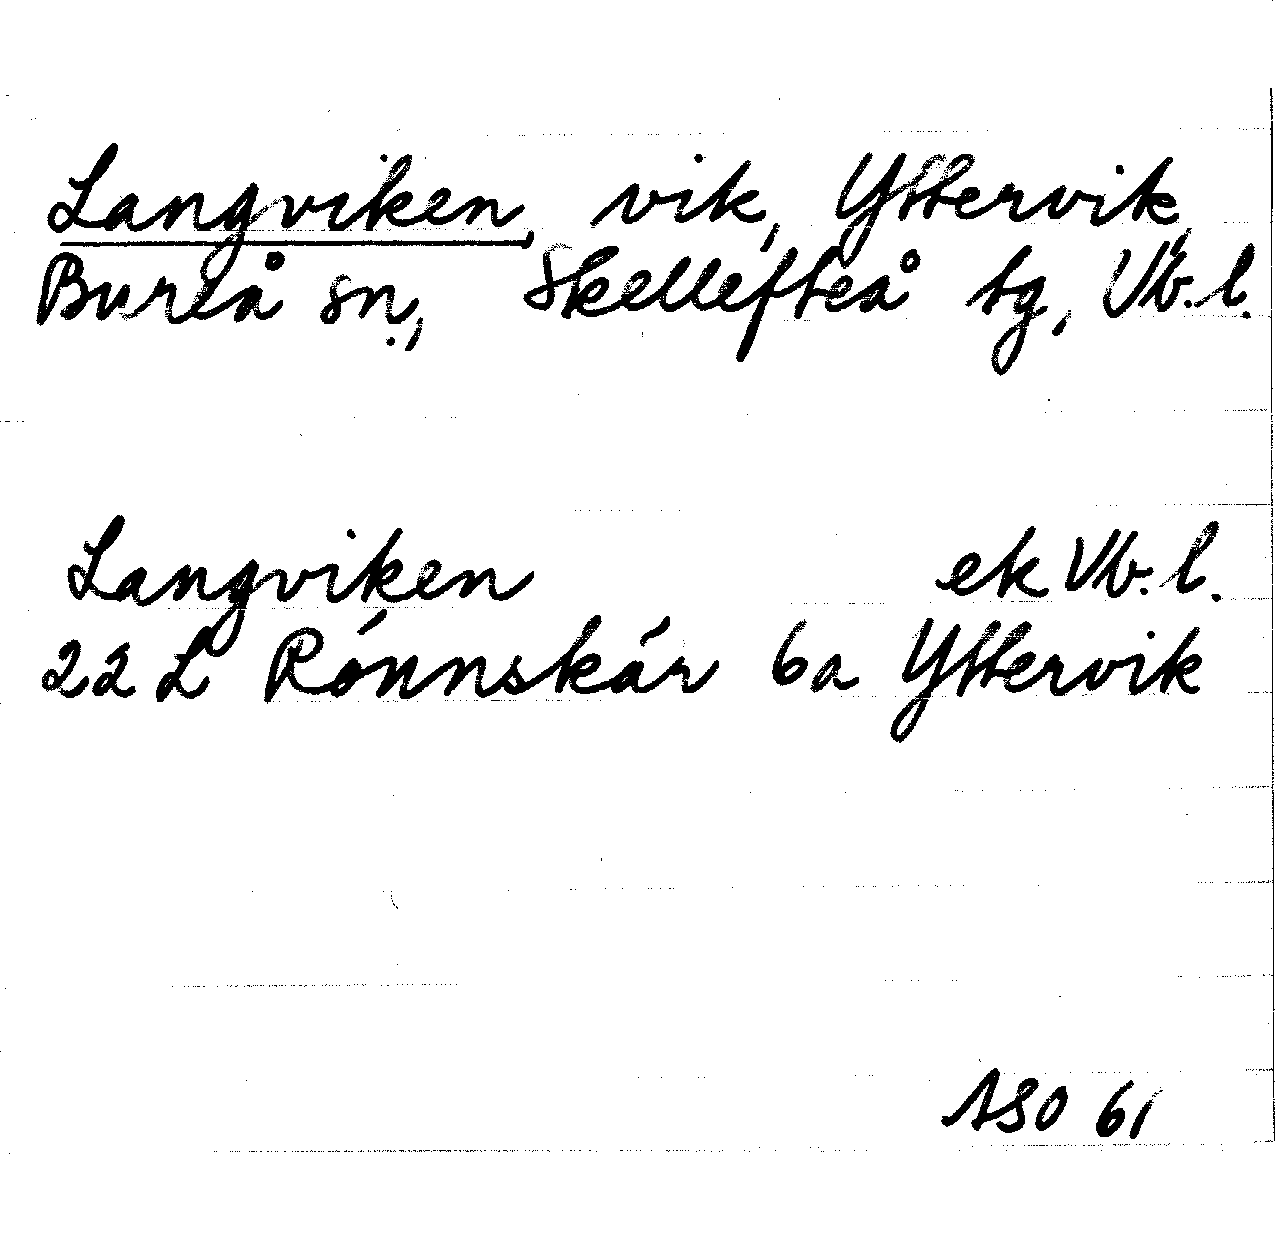 Langviken, vik, Yttervik,
Bureå sn., Skellefteå tg, Vb. l.
Langviken ek Vb. l.
22 L Rönnskär 6a Yttervik
ASO 61